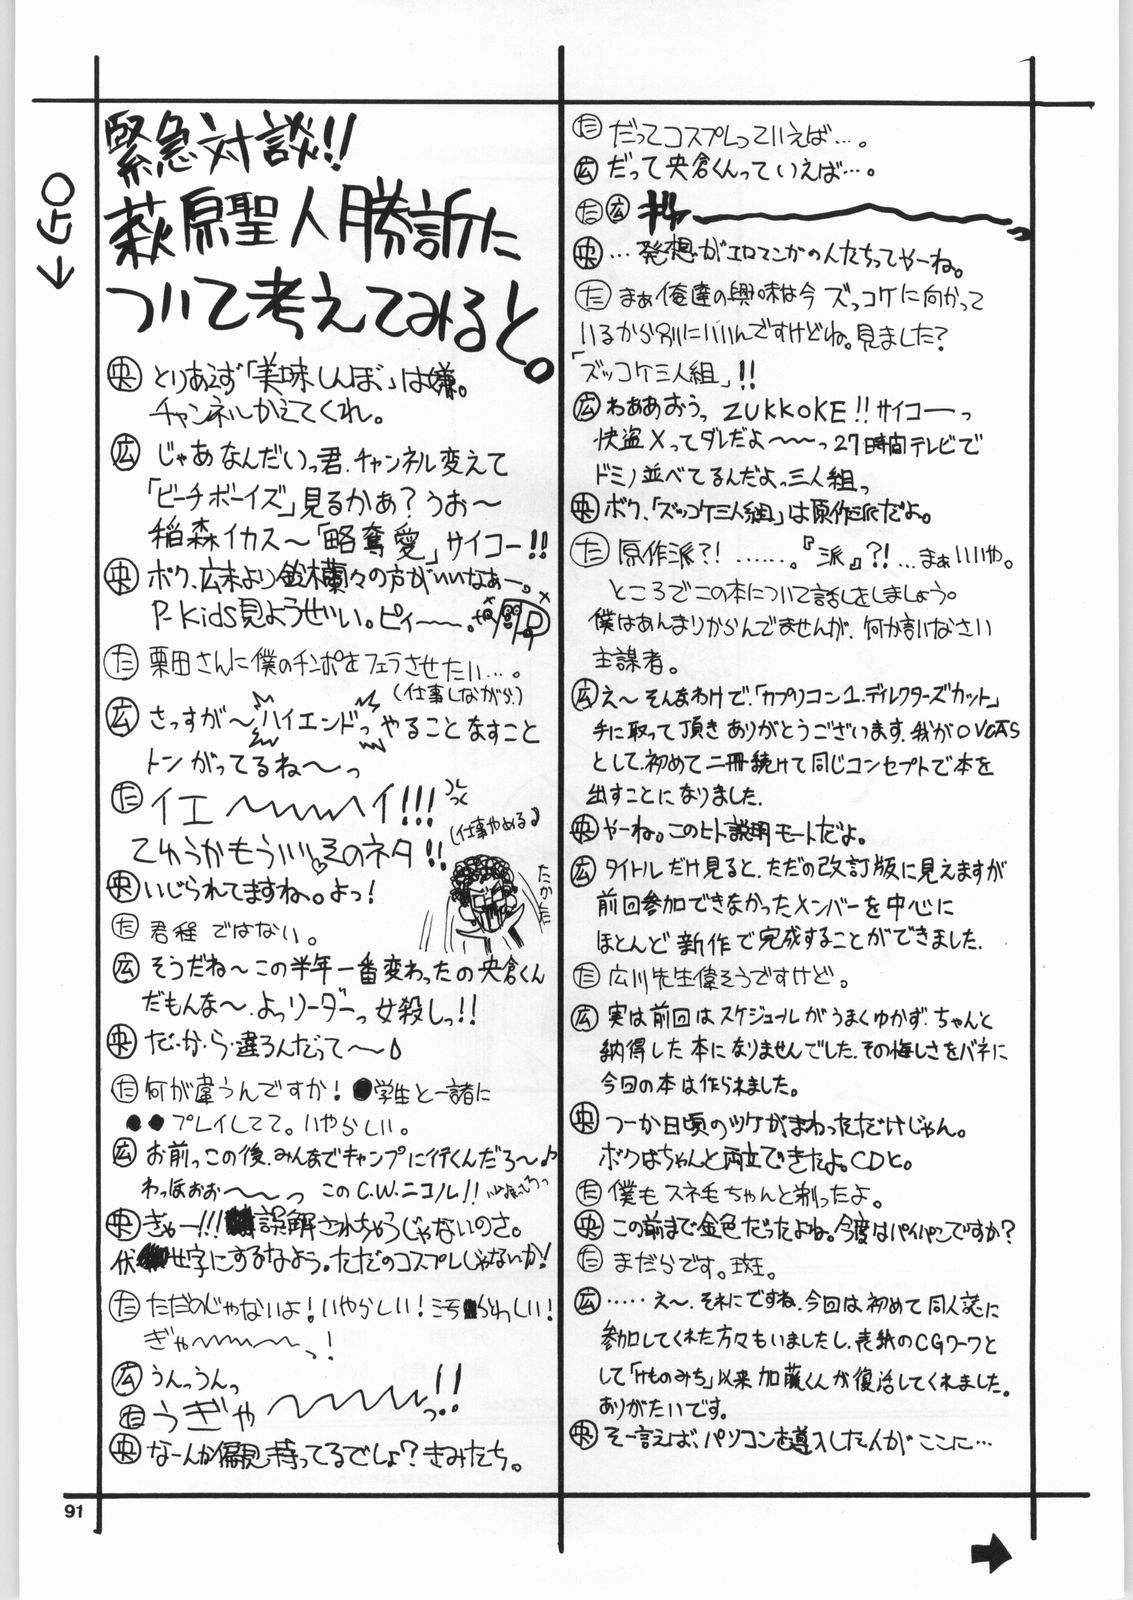 ←GO
緊急対談!!
萩原聖人勝訴に
ついて考えてみると。
央 とりあえず「美味しんぼ」は嫌。
チャンネルかえてくれ。
広 じゃあなんだいっ君、チャンネル変えて
「ビーチボーイズ」見るかあ?うお〜
稲森イカス〜「略奪愛」サイコー!!
央 ボク、広末より鈴木蘭々の方がいいなぁー。
P-Kids見ようぜいい。ピィ〜〜。
た 栗田さんに僕のチンポをフェラさせたい…。
(仕事しながら)
広 さっすが〜ハイエンドっやることなすこと
トンがってるね〜っ
た イエ〜〜〜イ!!!
(仕事やめる♪
てゆうかもういいそのネタ!!
たかた
央 いじられてますね。よっ!
た 君程ではない。
広 そうだね〜この半年一番変わったの央倉くん
だもんな〜、よっリーダーっ女殺しっ!!
央 だ・か・ら・違ろんだって〜♪
た 何が違うんですか!●学生と一諸に
●●プレイしてて。いやらしい。
広 お前っこの後、みんなでキャンプに行くんだろ〜♪
わっほおぉ〜〜っ このC.W.ニコル!!
央 ぎゃー!!!誤解されちゃうじゃないのさ。
伏せ字にするなよう。ただのコスプレじゃないか!
た ただのじゃないよ!いやらしい!
ぎゃ〜〜〜っ!
広 うんっうんっ
右 うぎゃ〜〜〜っ!!
央 なーんか偏見持ってるでしょ?きみたち。
た だってコスプレっていえば…。
広 だって央倉くんっていえば…。
た 広
央 …発想がエロマンガの人たちってやーね。
た まぁ俺達の興味は今ズッコケに向かって
いるから別にいいんですけどね。見ました?
「ズッコケ三人組」!!
広 わぁあおうっ ZUKKOKE!!サイコーっ
快盗Xってダレだよ〜〜っ27時間テレビで
ドミノ並べてるんだよっ三人組っ
央 ボク、「ズッコケ三人組」は原作派だよ。
た 原作派?!……。『派』?!…まぁいいや。
ところでこの本について話しをしましょう。
僕はあんまりからんでませんが、何か言いなさい
主謀者。
広 え〜そんなわけで、「カプリコン1.ディレクターズカット」
手に取って頂きありがとうございます、我がOVACAS
として、初めて二冊続けて同じコンセプトで本を
出すことになりました。
央 やーね。このヒト説明モードだよ。
広 タイトルだけ見ると、ただの改訂版に見えますが
前回参加できなかったメンバーを中心に
ほとんど新作で完成することができました。
た 広川先生偉そうですけど。
広 実は前回はスケジュールがうまくゆかず、ちゃんと
納得した本になりませんでした、その悔しさをバネに
今回の本は作られました。
央 つーか日頃のツケがまわっただけじゃん。
ボクはちゃんと両立できたよ。CDと。
た 僕もスネ毛ちゃんと剃ったよ。
央 この前まで金色だったよね。今度はパイパンですか?
た まだらです。斑。
広 ……え〜、それにですね、今回は初めて同人誌に
参加してくれた方々もいましたし、表紙のCGワークと
して「けものみち」以来加藤くんが復活してくれました。
ありがたいです。
央 そー言えば、パソコンを導入した人がここに…
91